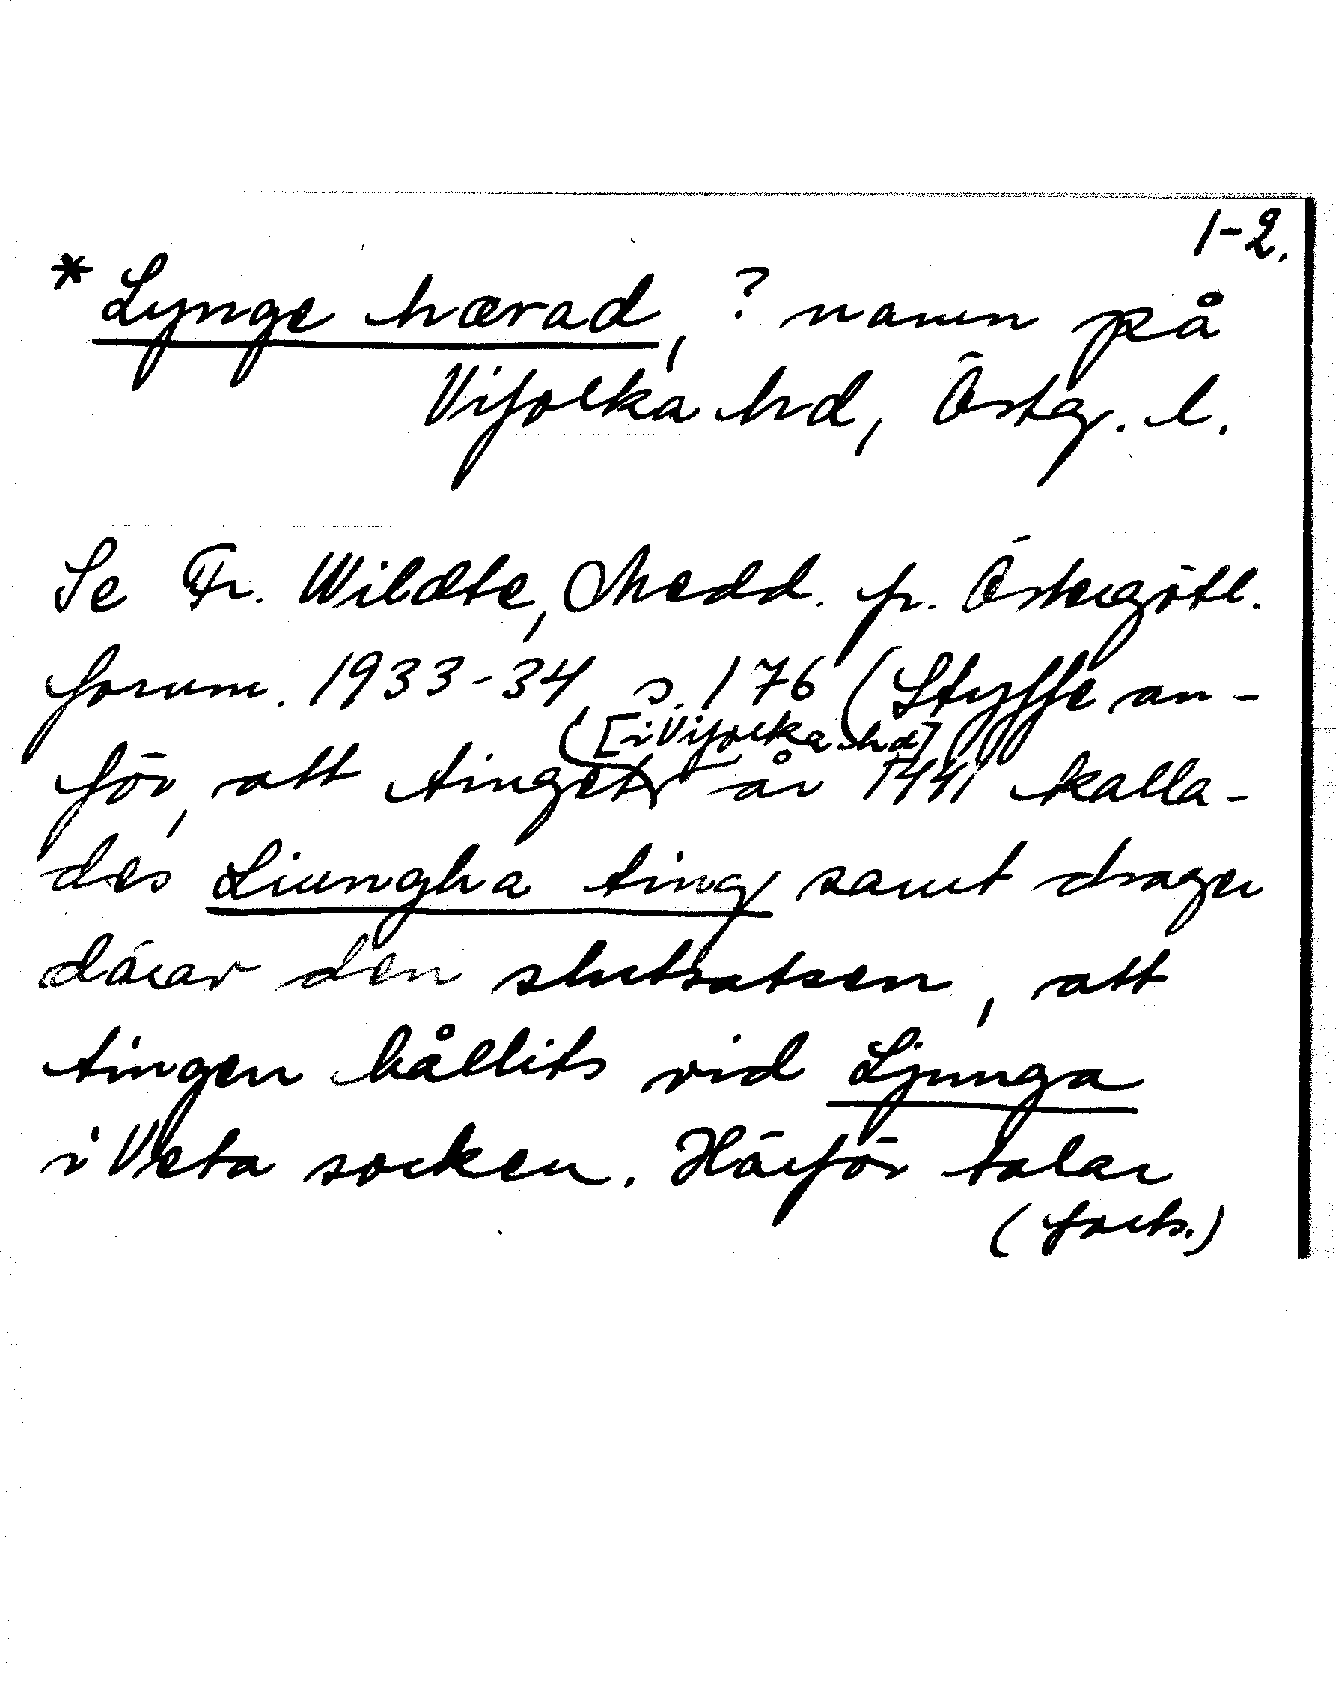 1-2.
* Lynge hærad, ? namn på
Vifolka hd, Östg. l.
Se Fr. Wildte, Medd. fr. Östergötl.
fornm. 1933-34 s. 176 (Styffe an-
[i Vifolka hd]
för, att tinget år 1441 kalla-
des Liungha ting samt drager
därav den slutsatsen, att
tingen hållits vid Ljunga
i Veta socken. Härför talar
(forts.)